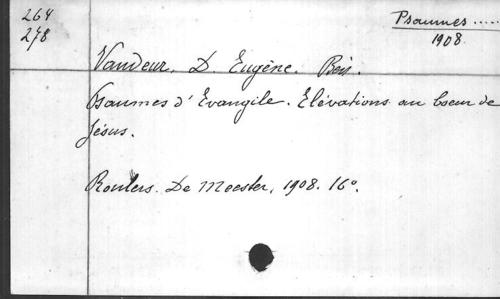 264
278
Psaumes .....
1908.
Vandeur, D. Eugène. Bén.
Psaumes d'Evangile. Elévations au Coeur de
Jésus.
Roulers. De Meester, 1908. 16°.